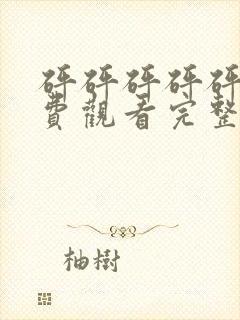 砰砰砰砰砰
費觀看完整
柚樹